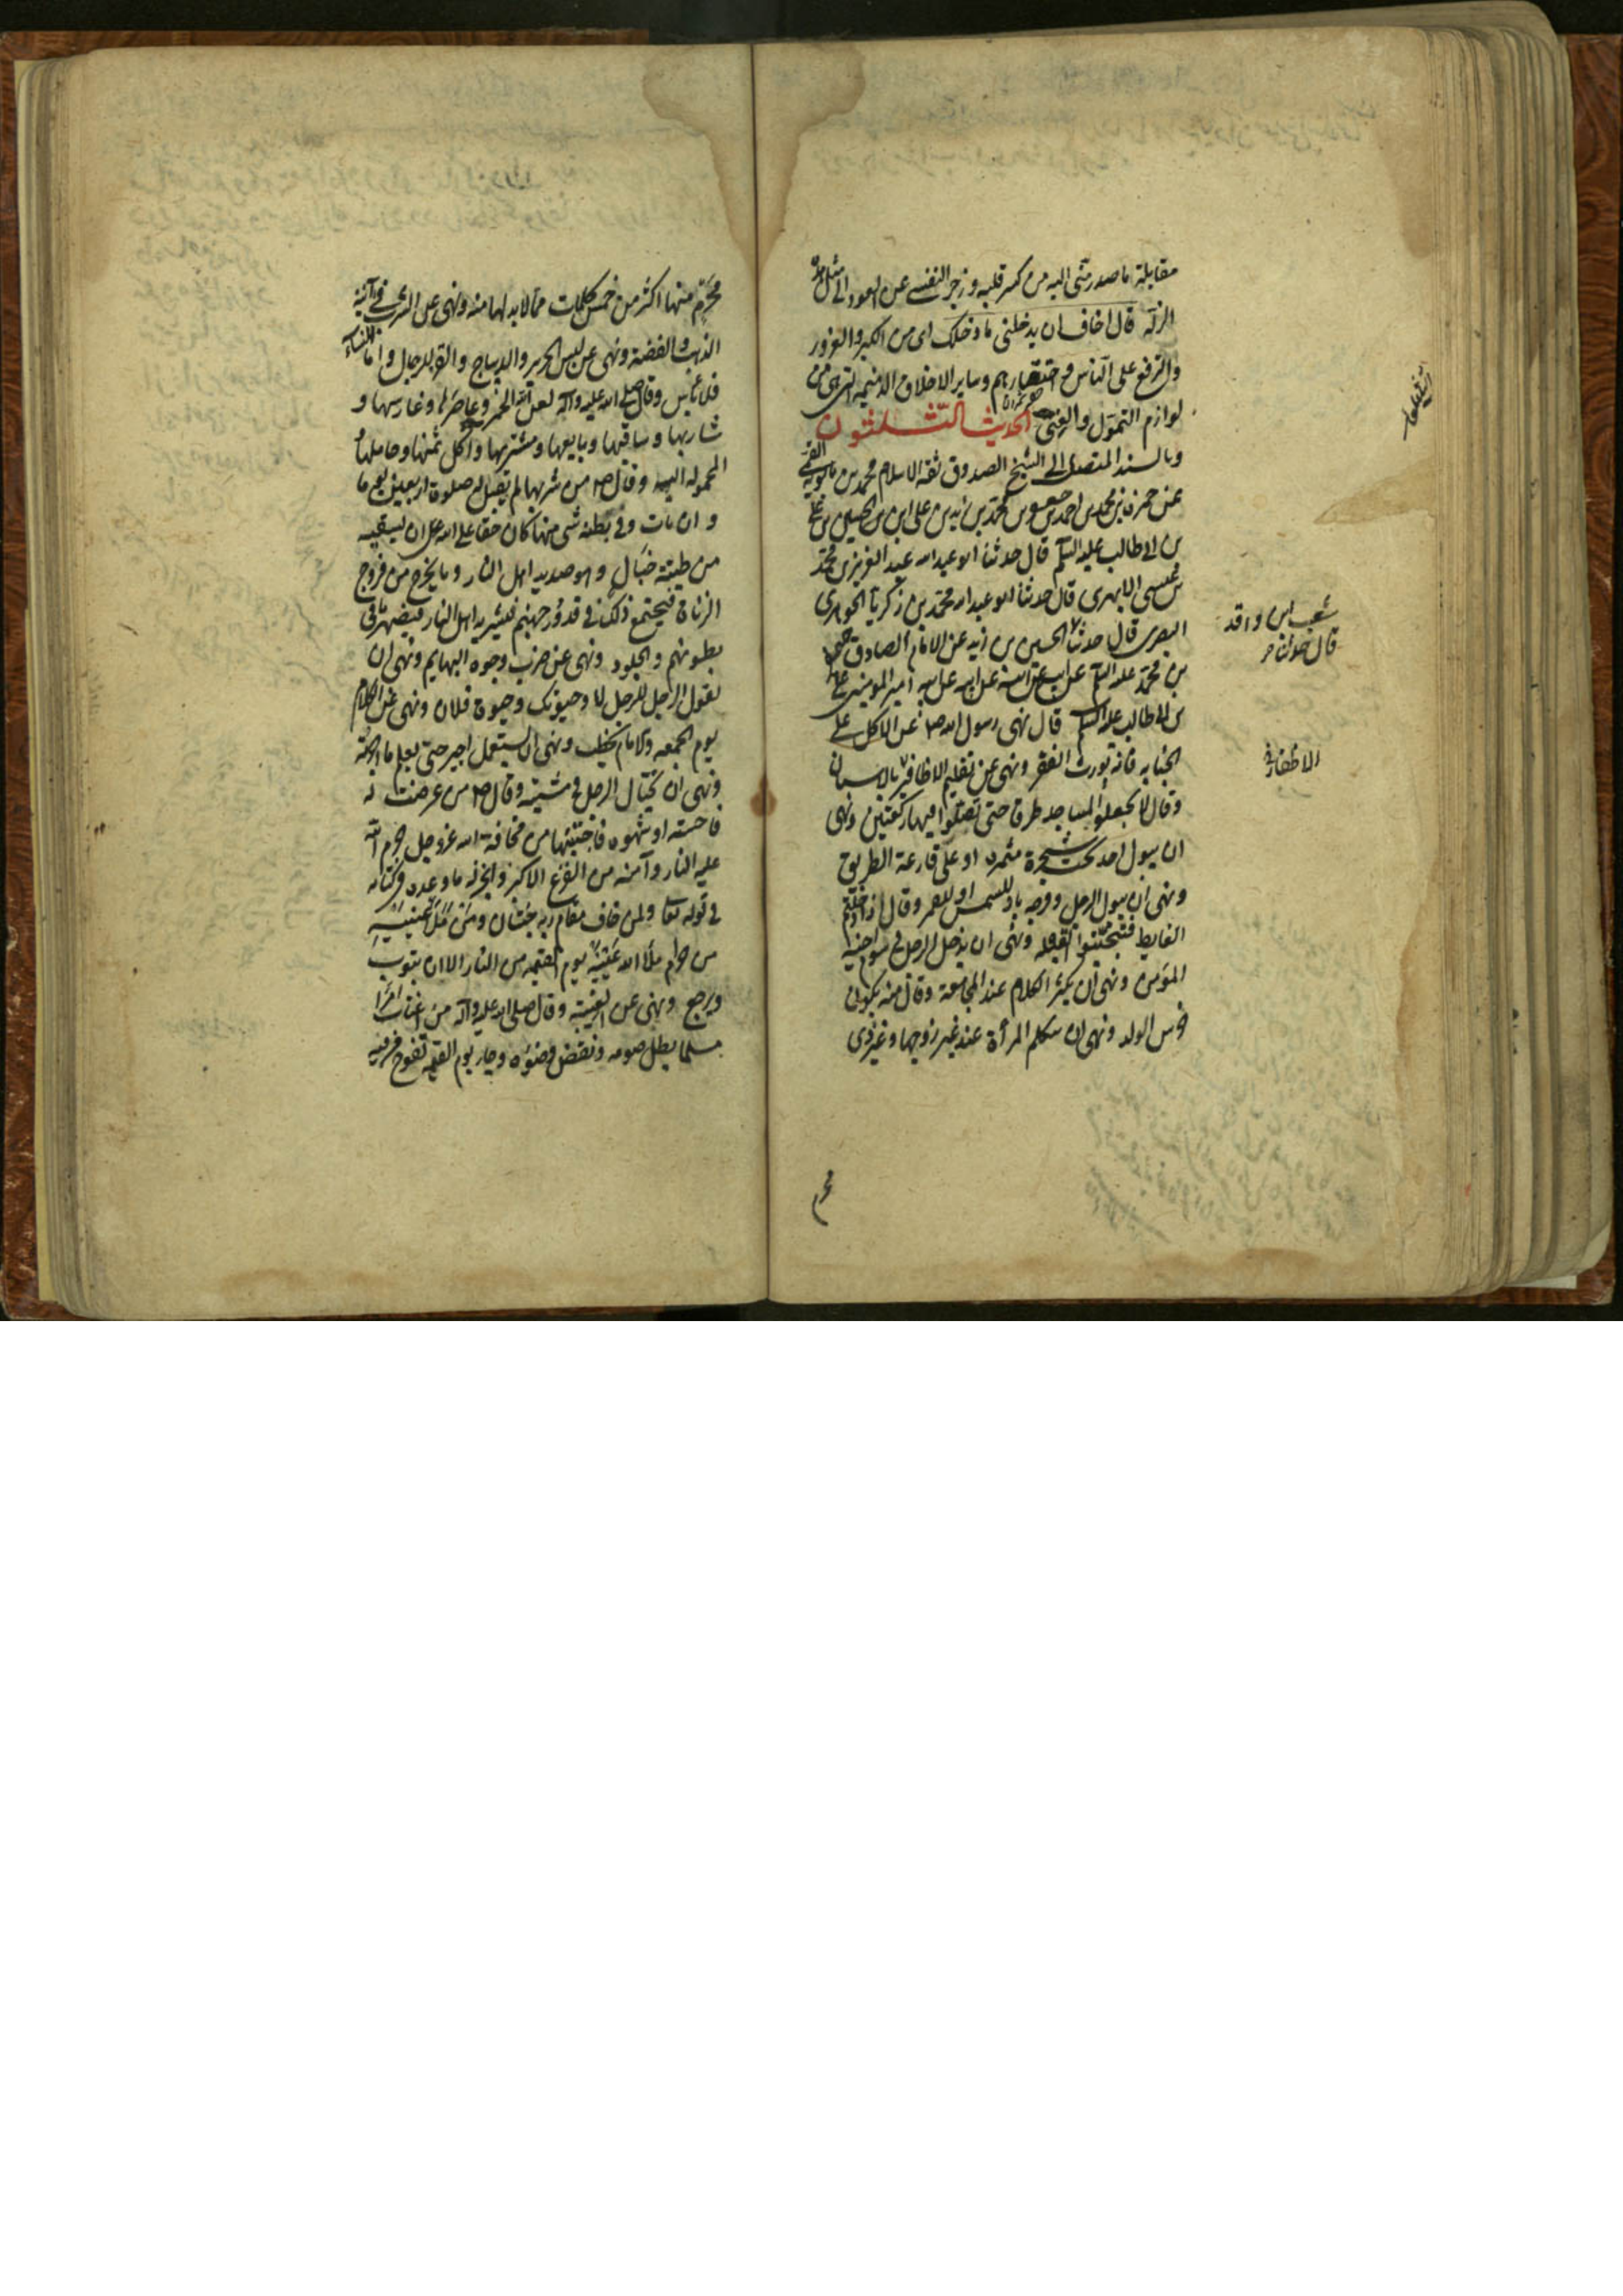 مقابلة ما صدر منى اليه من كسر قلبه و زجر النفس عن العود الى مثل هذه
الزلة قال اخاف ان يدخلنى ما دخلك اى من الكبر والغرور
والترفع على الناس و احتقارهم و ساير الاخلاق الذميمة التى هى من
لوازم التمول والغنى الحديث الثلثون
وبالسند المتصل الى الشيخ الصدوق ثقة الاسلام محمد بن بابويه القمى
عن حمزة بن محمد بن احمد بن جعفر بن محمد بن زيد بن على بن الحسين بن على
بن ابى طالب عليه السلم قال حدثنا ابو عبد الله عبد العزيز بن محمد
بن عيسى الابهرى قال حدثنا ابو عبد الله محمد بن زكريا الجوهرى
البصرى قال حدثنا الحسين بن زيد عن الامام الصادق جعفر
بن محمد عليه السلم عن ابيه عن ابيه عن ابيه عن ابيه امير المومنين على
بن ابى طالب عليه السلم قال نهى رسول الله ص عن الاكل على
الجنابه فانه يورث الفقر و نهى عن تقليم الاظافير بالاسنان
وقال لا تجعلوا المساجد طرقا حتى تصلوا فيها ركعتين ونهى
ان يبول احد تحت شجرة مثمره او على قارعة الطريق
ونهى ان يبول الرجل وفرجه باد للشمس او للقمر وقال اذا دخلتم
الغايط فتجنبوا القبله ونهى ان يدخل الرجل فى سوم اخيه
المؤمن ونهى ان يكثر الكلام عند المجامعة وقال منه يكون
خرس الولد ونهى ان تتكلم المرأة عند غير زوجها و غير ذى
محرم
شعيب بن واقد
قال حدثنا
الاظفار
محرم منها اكثر من خمس كلمات مما لا بد لها منه ونهى عن الشرب فى آنية
الذهب والفضة ونهى عن لبس الحرير والديباج والقز للرجال واما للنساء
فلا باس وقال صلى الله عليه وآله لعن الله الخمر وعاصرها وغارسها و
شاربها وساقيها وبايعها ومشتريها وآكل ثمنها وحاملها و
المحموله اليه وقال ص من شربها لم تقبل له صلوة اربعين يوما
وان مات وفى بطنه شى منها كان حقا على الله عز ان يسقيه
من طينة خبال وهو صديد اهل النار وما يخرج من فروج
الزناة فيجتمع ذلك فى قدور جهنم فيشربه اهل النار فيصهر ما فى
بطونهم والجلود ونهى عن ضرب وجوه البهايم ونهى ان
يقول الرجل للرجل لا وحيوتك وحيوة فلان ونهى عن الكلام
يوم الجمعه والامام يخطب ونهى ان يستعمل اجير حتى يعلم ما اجرته
ونهى ان يختال الرجل فى مشيته وقال ص من عرضت له
فاحشة او شهوه فاجتنبها من مخافة الله عز وجل حرم الله
عليه النار وآمنه من الفزع الاكبر وانجز له ما وعده فى كتابه
فى قوله تعا ولمن خاف مقام ربه جنتان ومن ملأ عينيه
من حرام ملأ الله عينيه يوم القيمه من النار الا ان يتوب
ويرجع ونهى عن الغيبة وقال صلى الله عليه وآله من اغتاب امرأ
مسلما بطل صومه ونقض وضوءه وجاء يوم القيمه تفوح من فيه